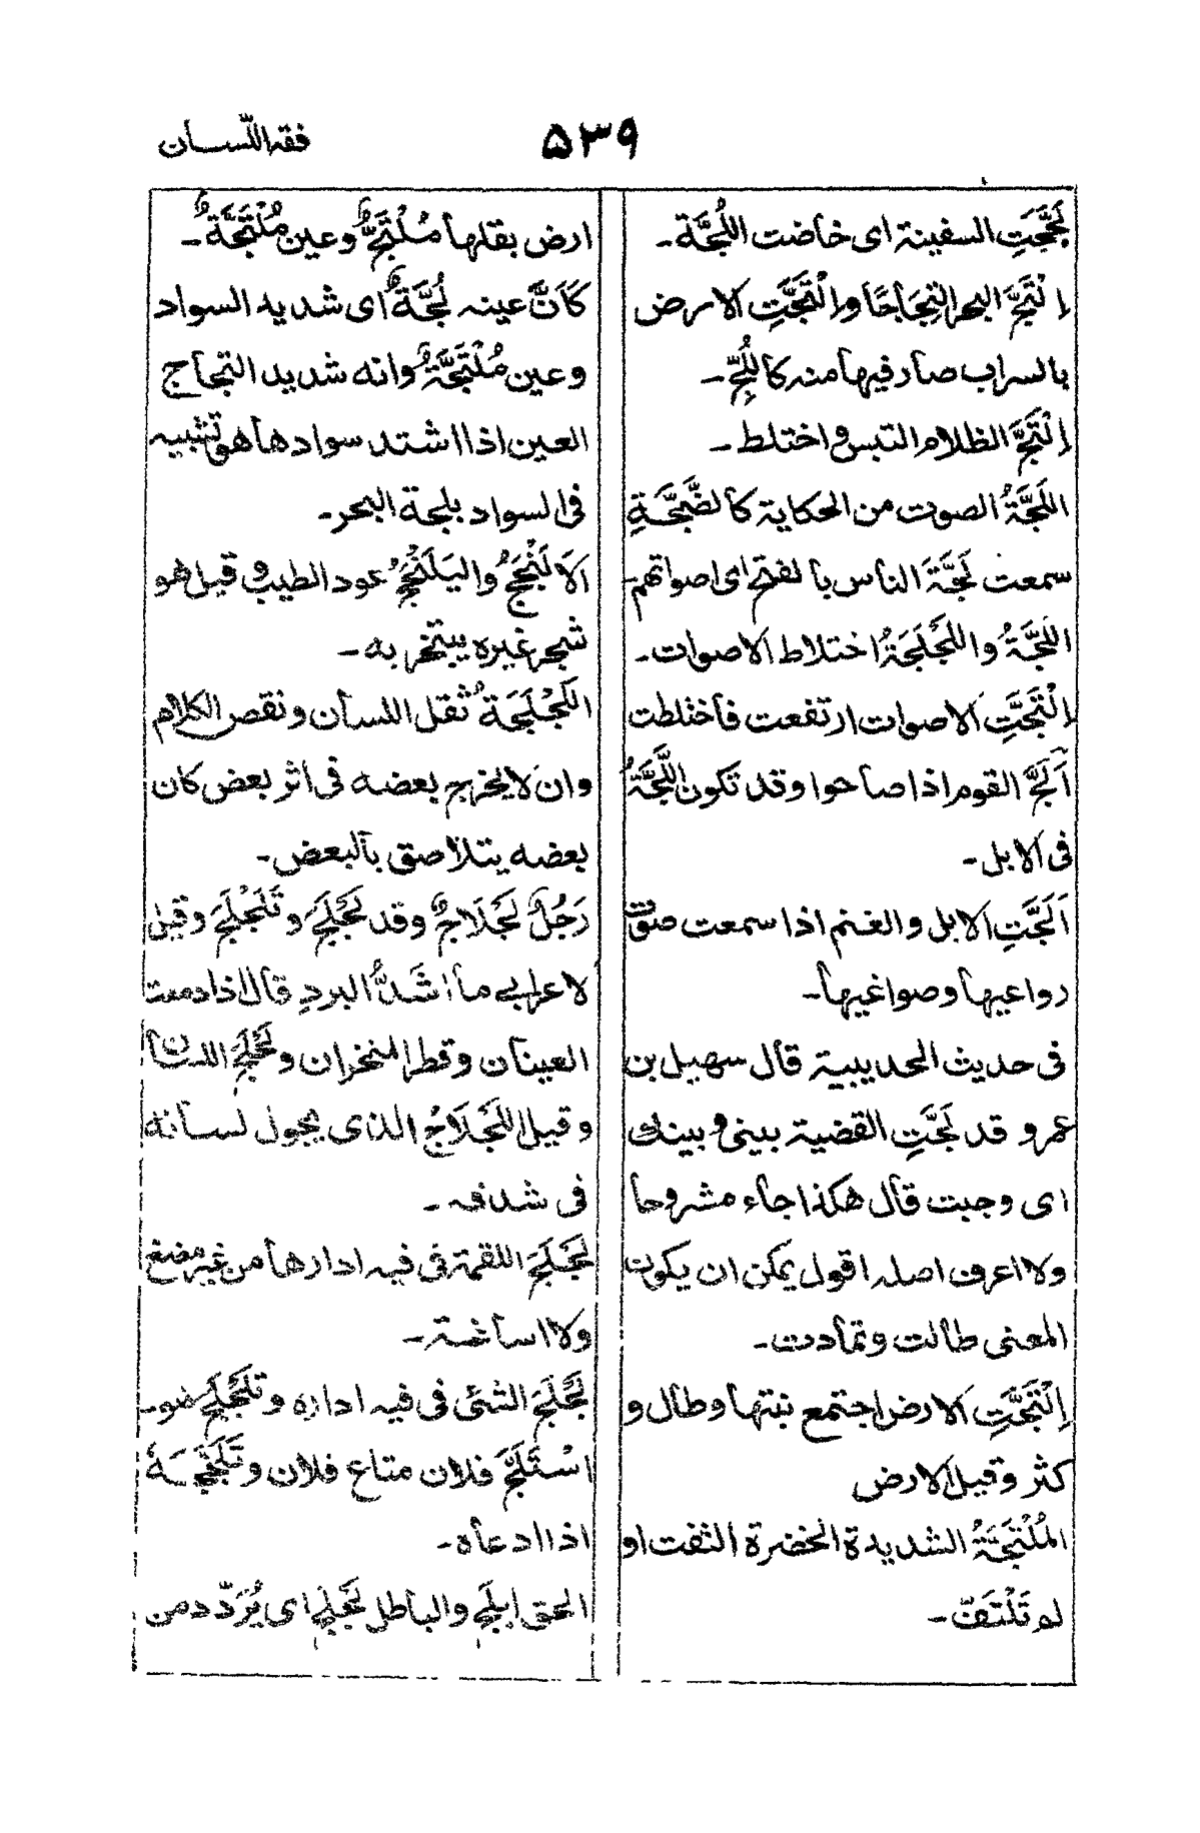 فقه اللّسان
۵۳۹
لَجَّجَتِ السفينة ای خاضت اللُّجَّة ۔
اِلْتَجَّ البحر التِجَاجًا واِلْتَجَّتِ الارض
بالسراب صار فيها منه كاللُجِّ ۔
اِلْتَجَّ الظلام التبس و اختلط ۔
اللَجَّةُ الصوت من الحكاية كالضَّجَّةِ
سمعت لَجَّةَ الناس بالفتح ای اصواتهم ۔
اللَجَّةُ واللَجْلَجَةُ اختلاط الاصوات ۔
اِلْتَجَّتِ الاصوات ارتفعت فاختلطت
اَلَجَّ القوم اذا صاحوا وقد تكون اللَّجَّةُ
فی الابل ۔
اَلَجَّتِ الابل والغنم اذا سمعت صوت
رواعيها وصواغيها ۔
فی حديث الحديبية قال سهيل بن
عمرو قد لَجَّتِ القضية بينی و بينك
ای وجبت قال هكذا جاء مشروحا
ولا اعرف اصله اقول يمكن ان يكون
المعنی طالت وتمادت ۔
اِلْتَجَّتِ الارض اجتمع نبتها وطال و
كثر وقيل الارض
المُلْتَجَّةُ الشديدة الخضرة التفت او
لم تَلْتَفّ ۔
ارض بقلها مُلْتَجٌّ وعين مُلْتَجَّةٌ ۔
كَاَنَّ عينه لُجَّةٌ ای شديد السواد
وعين مُلْتَجَّةٌ وانه شديد التجاج
العين اذا اشتد سوادها هو تشبيه
فی السواد بلجة البحر ۔
الاَلَنْجَجُ واليَلَنْجَجُ عود الطيب و قيل هو
شجر غيره يبتخر به ۔
اللَجْلَجَةُ ثقل اللسان ونقص الكلام
وان لا يخرج بعضه فی اثر بعض كان
بعضه يتلاصق بالبعض ۔
رَجُلٌ لَجْلَاجٌ وقد لَجْلَجَ و تَلَجْلَجَ وقيل
لاعرابی ما اشَدُّ البردِ قال اذا دمعت
العينان وقطر المنخران ولَجْلَجَ اللسان
وقيل اللَجْلَاجُ الذی يجول لسانه
فی شدقه ۔
لَجْلَجَ اللقمة فی فيه ادارها من غير مضغ
ولا اساغة ۔
لَجْلَجَ الشئی فی فيه اداره وتَلَجْلَجَ هو ۔
اسْتَلَجَّ فلان متاع فلان وتَلَجَّجَهُ
اذا ادعاه ۔
الحق ابلج والباطل لَجْلَج ای يُرَدّد من